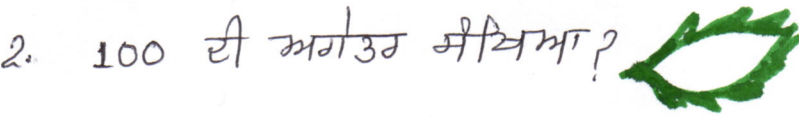 2. 100 ਦੀ ਅਗੇਤਰ ਸੰਖਿਆ?